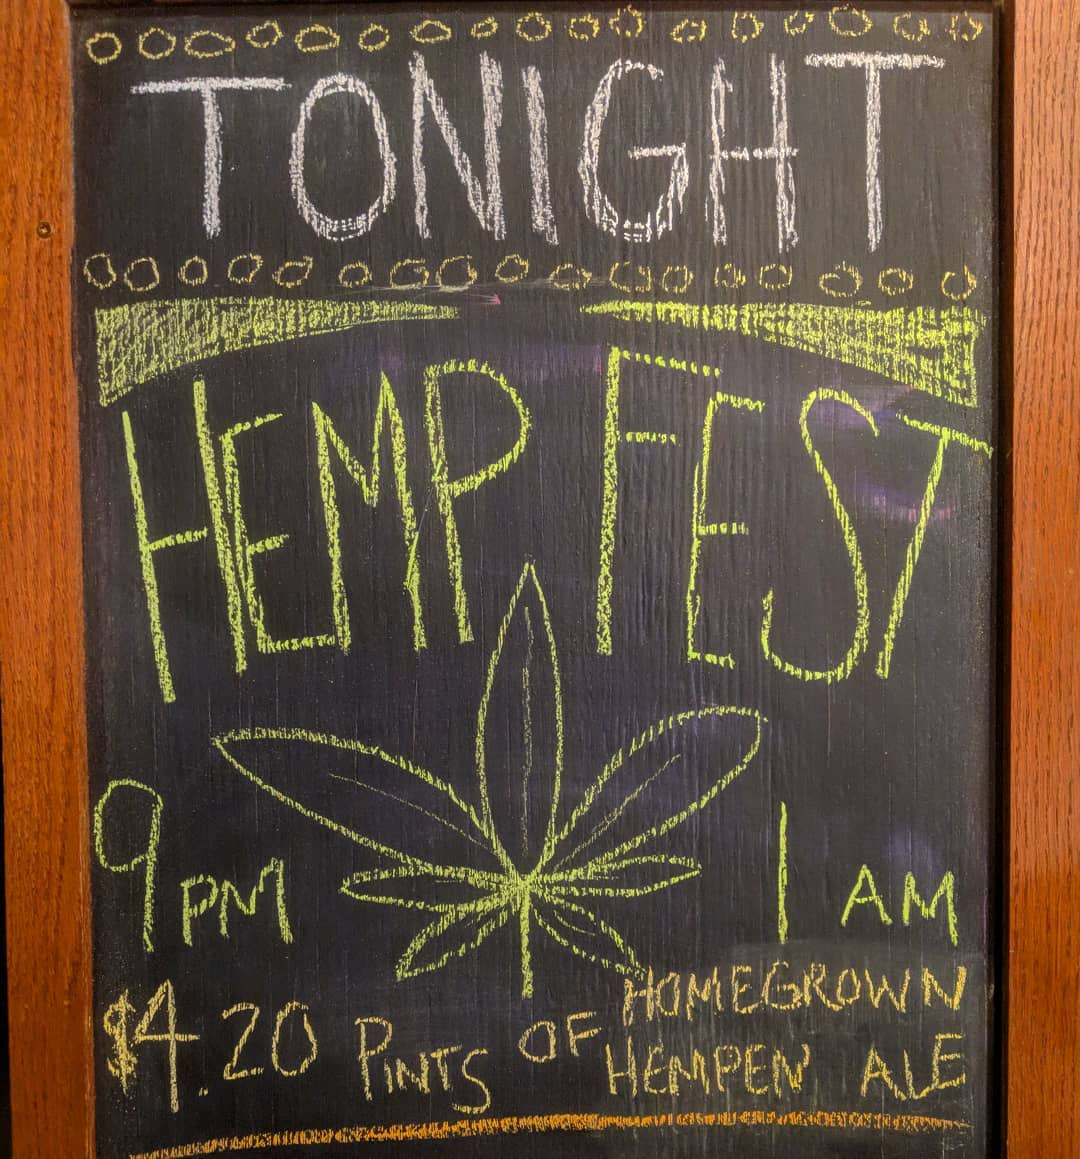 TONIGHT
HEMP FEST
9 PM 1 AM
$4.20 PINTS OF HOMEGROWN
HEMPEN ALE